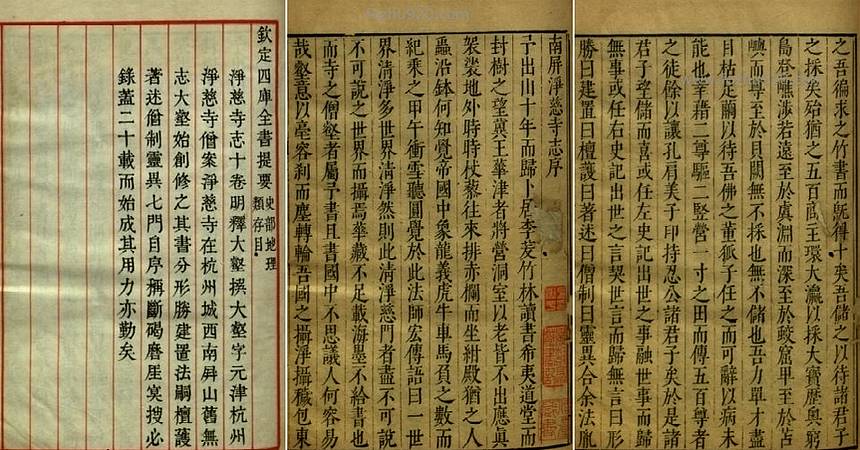 欽定四庫全書提要 史部地理類存目
淨慈寺志十卷明釋大壑撰大壑字元津杭州
淨慈寺僧案淨慈寺在杭州城西南屛山舊無
志大壑始創修之其書分形勝建置法嗣檀護
著述僧制靈異七門自序稱斷碣磨厓冥搜必
錄蓋二十載而始成其用力亦勤矣
南屏淨慈寺志序
予出山十年而歸卜居李友竹林讀書希夷道堂而
封樹之望異王華津者將營洞室以老皆不出應眞
袈裟地外時時杖藜往來排赤欄而坐紺殿猶之人
蝨沿鉢何知覺帝國中象龍義虎牛車馬負之數而
紀乘之甲午衝雪聽圓覺於此法師宏傳語曰一世
界清淨多世界清淨然則此清淨慈門者盡不可說
不可說之世界而攝焉華藏不足載海墨不給書也
而寺之僧壑者屬予書且書國中不思議人何容易
哉壑意以毫容刹而塵轉輪吾國之攝淨攝穢包東
之吾徧求之竹書而旣得十矣吾儲之以待諸君子
之採矣殆猶之五百王環大瀛以採大寶歷輿窮
島登巇涉若遠至於眞淵而深至於蛟窟甲至於苫
輿而尊至於貝闕無不採也無不儲也吾力單才盡
目枯足繭以待吾佛之董狐子任之而可辭以病未
能也幸藉二尊驅二竪營一寸之田而傳五百尊者
之徒餘以讓孔肩美子印持忍公諸君子矣於是諸
君子垐儲而喜或任左史記出世之事融世事而歸
無事或任右史記出世之言契世言而歸無言曰形
勝曰建置曰檀護曰著述曰僧制曰靈異合余法胤